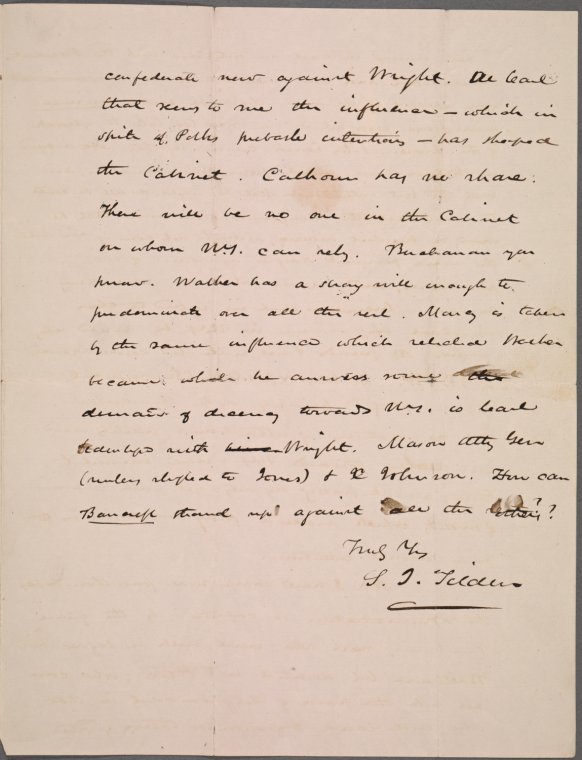 confederate now against Wright. At least
that seems to me the influence – which in
spite of Polks probable intentions – has shaped
the Cabinet. Calhoun has no share.
There will be no one in the Cabinet
on whom N.Y. can rely. Buchanan you
know. Walker has a strong will enough to
predominate over all the rest. Marcy is taken
by the same influence which selected Walker
because while he answers some the
demand of decency towards N.Y. is least
with Wright. Mason Atty Gen
(unless shifted to Jones) & C Johnson. How can
Bancroft stand up against all the others?
Truly Yrs
S. J. Tilden